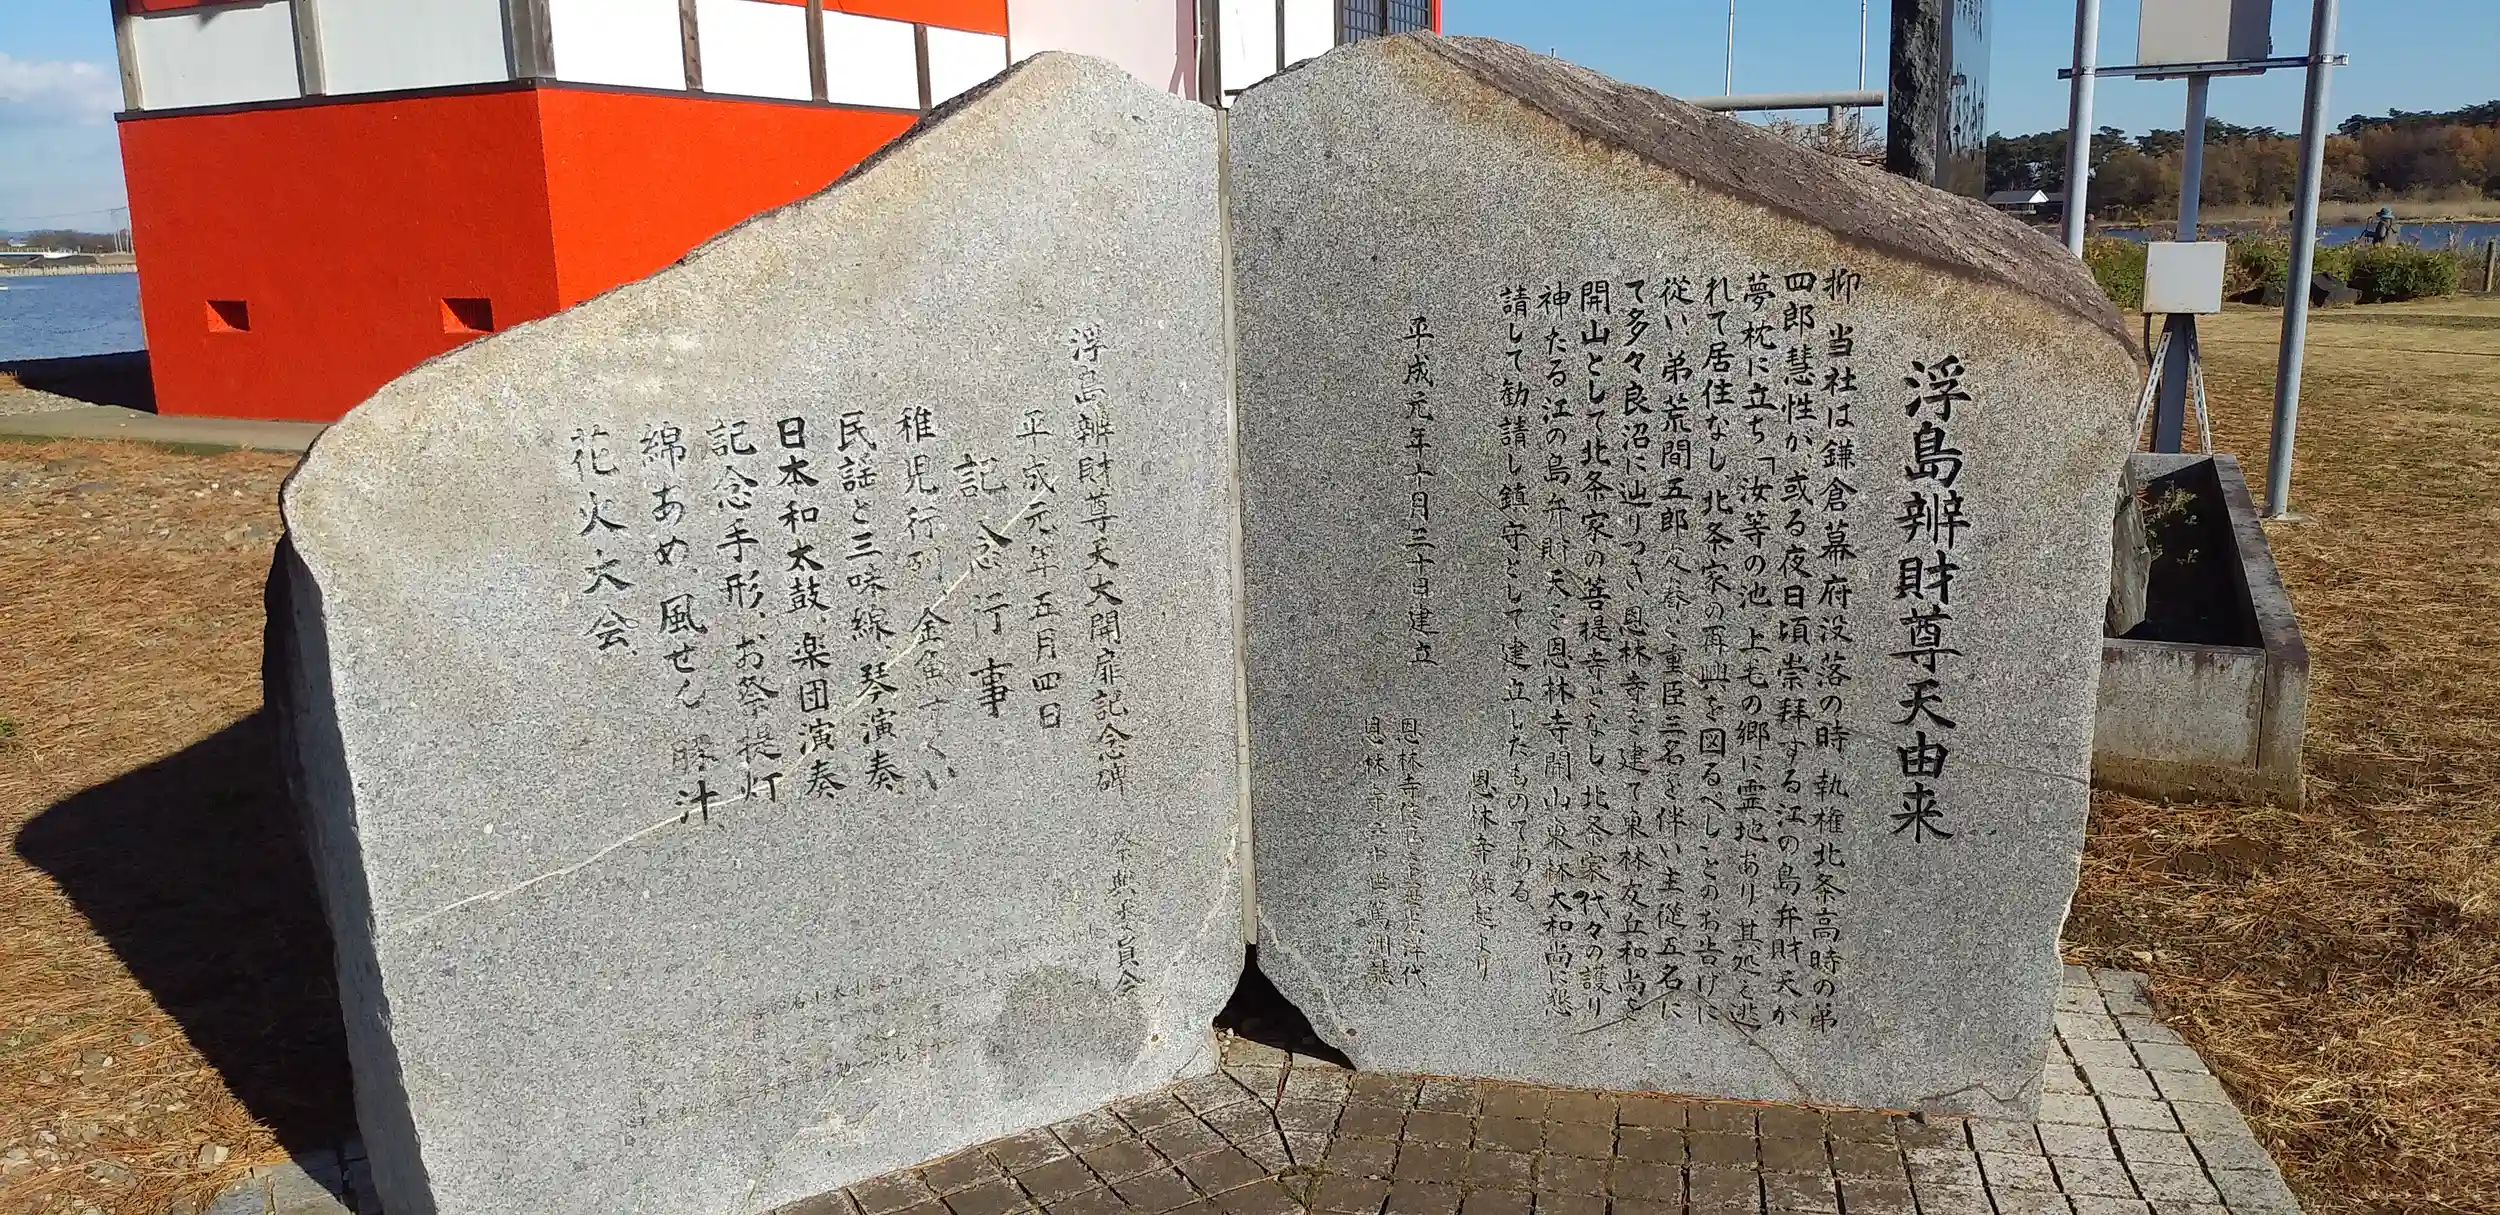 浮島辨財尊天由来
抑々当社は鎌倉幕府没落の時、執権北条高時の弟
四郎慧性が、或る夜日頃崇拝する江の島弁財天が
夢枕に立ち「汝等の池、上毛の郷に霊地あり、其処に逃
れて居住なし、北条家の再興を図るべしとのお告げに
従い弟荒間五郎友春と重臣三名を伴い主従五名に
て多々良沼に辿りつき、恩林寺を建て東林友丘和尚を
開山として北条家の菩提寺となし、北条家代々の護り
神たる江の島弁財天を恩林寺開山東林大和尚に懇
請して勧請し鎮守として建立したものである。
恩林寺縁起より
平成元年十月三十日建立
恩林寺
恩林寺
浮島辨財尊天大開扉記念碑 祭典委員会
平成元年五月四日
記念行事
稚児行列、金魚すくい
民謡と三味線、琴演奏
日本和太鼓、楽団演奏
記念手形、お祭提灯
綿あめ、風せん、豚汁
花火大会